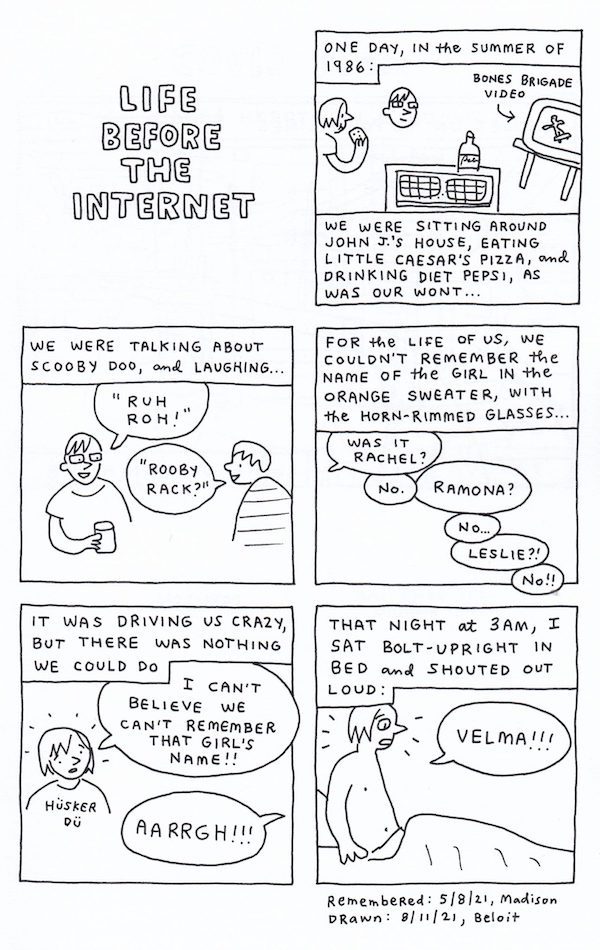 LIFE
BEFORE
THE
INTERNET
ONE DAY, IN the SUMMER OF
1986:
BONES BRIGADE
VIDEO
WE WERE SITTING AROUND
JOHN J.'S HOUSE, EATING
LITTLE CAESAR'S PIZZA, and
DRINKING DIET PEPSI, AS
WAS OUR WONT...
WE WERE TALKING ABOUT
SCOOBY DOO, and LAUGHING...
"RUH
ROH!"
"ROOBY
RACK?"
FOR the LIFE OF US, WE
COULDN'T REMEMBER the
NAME OF the GIRL IN the
ORANGE SWEATER, WITH
the HORN-RIMMED GLASSES...
WAS IT
RACHEL?
NO.
RAMONA?
NO...
LESLIE?!
NO!!
IT WAS DRIVING US CRAZY,
BUT THERE WAS NOTHING
WE COULD DO
I CAN'T
BELIEVE WE
CAN'T REMEMBER
THAT GIRL'S
NAME!!
HÜSKER
DÜ
AARRGH!!!
THAT NIGHT at 3AM, I
SAT BOLT-UPRIGHT IN
BED and SHOUTED OUT
LOUD:
VELMA!!!
Remembered: 5/8/21, Madison
Drawn: 8/11/21, Beloit